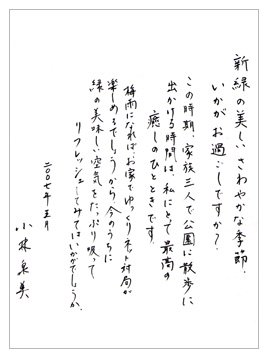 新緑の美しいさわやかな季節、
いかがお過ごしですか？
この時期、家族三人で公園に散歩に
出かける時間は、私にとって最高の
癒しのひとときです。
梅雨になればお家でゆっくりネット対局が
楽しめるでしょうから今のうちに
緑の美味しい空気をたっぷり吸って
リフレッシュしてみてはいかがでしょうか。
二〇〇七年五月
小林泉美